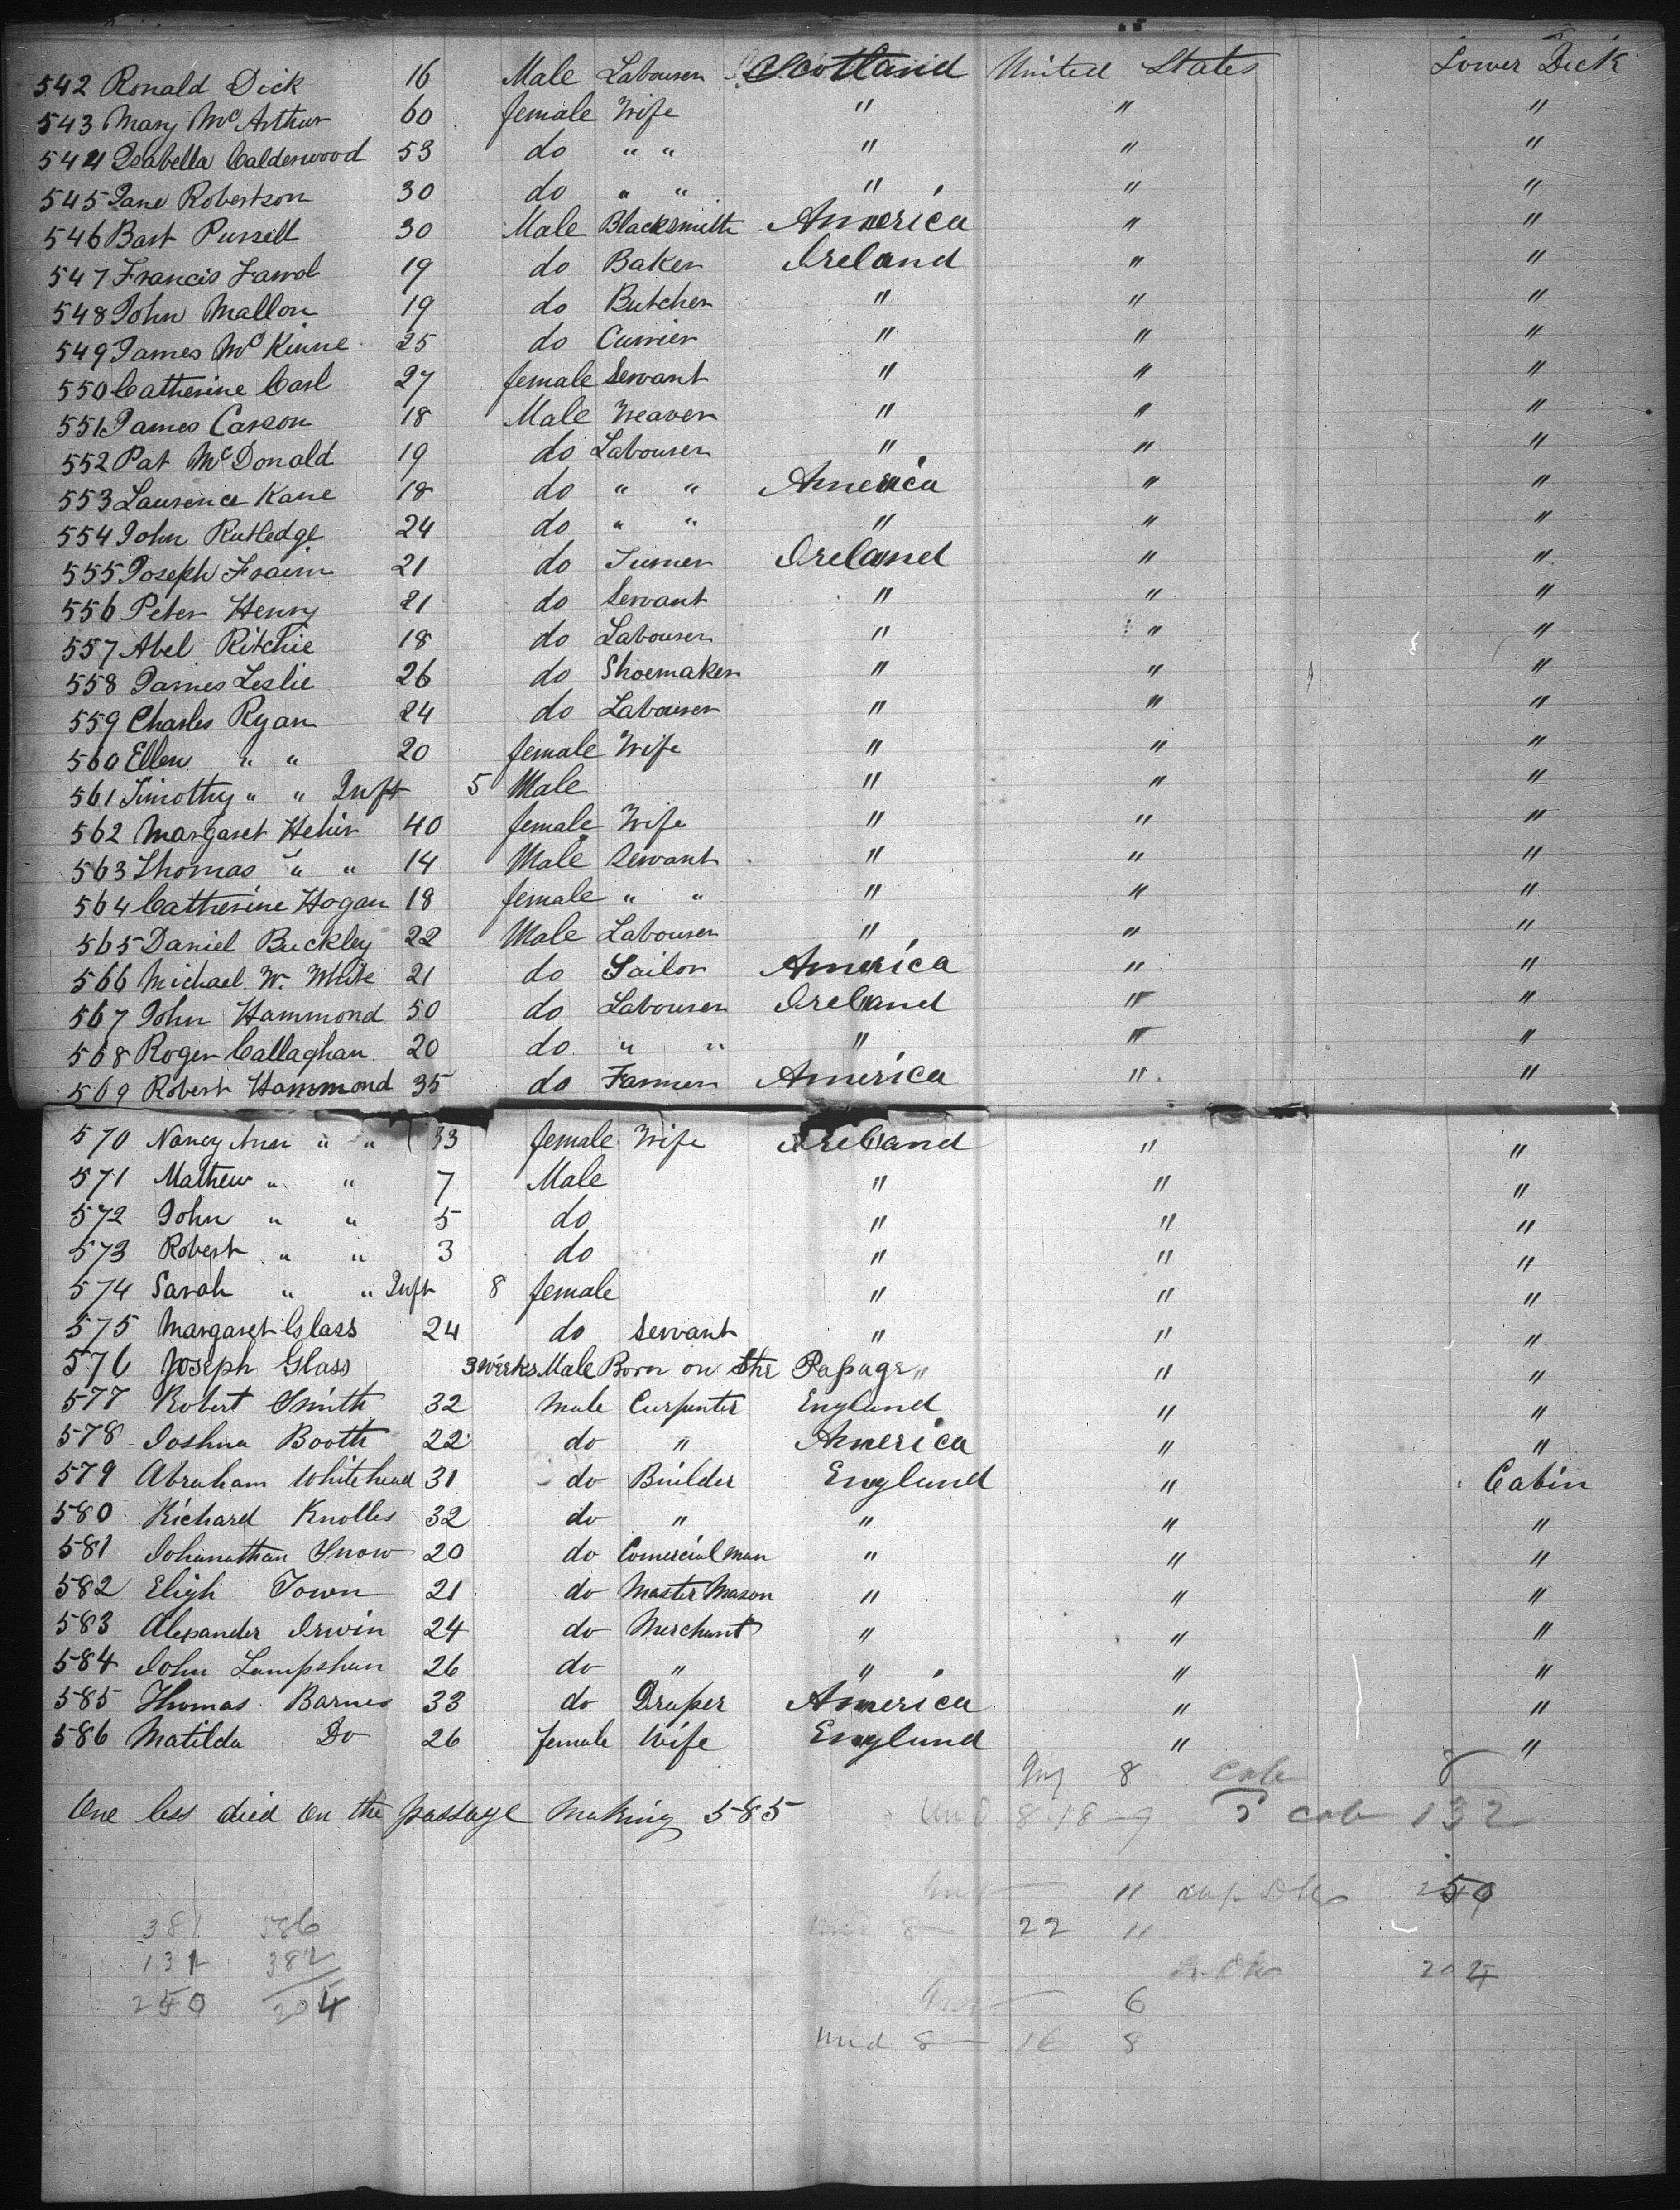 542 Ronald Dick 16 Male Labourer Scotland United States Lower Dick
543 Mary McArthur 60 female Wife " " "
544 Isabella Calderwood 53 do " " " " "
545 Jane Robertson 30 do " " " " "
546 Bart Pursell 30 Male Blacksmith America " "
547 Francis 19 do Baker Ireland " "
548 John Mallon 19 do Butcher " " "
549 James McKinne 25 do Currier " " "
550 Catherine Carl 27 female Servant " " "
551 James Carson 18 Male Weaver " " "
552 Pat McDonald 19 do Labourer " " "
553 Laurence Kane 18 do " " America " "
554 John Rutledge 24 do " " " " "
555 Joseph Fraim 21 do Turner Ireland " "
556 Peter Henry 21 do Servant " " "
557 Abel Ritchie 18 do Labourer " " "
558 James Leslie 26 do Shoemaker " " "
559 Charles Ryan 24 do Labourer " " "
560 Ellen " " 20 female Wife " " "
561 Timothy " " Inft 5 Male " " "
562 Margaret Hehir 40 female Wife " " "
563 Thomas " " 14 Male Servant " " "
564 Catherine Hogan 18 female " " " " "
565 Daniel Buckley 22 Male Labourer " " "
566 Michael W. White 21 do Sailor America " "
567 John Hammond 50 do Labourer Ireland " "
568 Roger Callaghan 20 do " " " " "
569 Robert Hammond 35 do Farmer America " "
570 Nancy Ann " " 33 female Wife Ireland " "
571 Mathew " " 7 Male " " "
572 John " " 5 do " " "
573 Robert " " 3 do " " "
574 Sarah " " Inft 8 female " " "
575 Margaret Glass 24 do Servant " " "
576 Joseph Glass 3 weeks Male Born on the Passage " " "
577 Robert Smith 32 Male Carpenter England " "
578 Joshua Booth 22 do " America " "
579 Abraham Whitehead 31 do Builder England " Cabin
580 Richard Knolles 32 do " " " "
581 Johanathan Snow 20 do Comercial man " " "
582 Eligh Town 21 do Master Mason " " "
583 Alexander Irwin 24 do Merchant " " "
584 John Lampshan 26 do " " " "
585 Thomas Barnes 33 do Draper America " "
586 Matilda Do 26 female Wife England " "
8 8
One less died on the passage Making 585
8 18 cab 132
" 250
22 "
381 586
131 382 204
250 204
6
Und 8 — 16 8